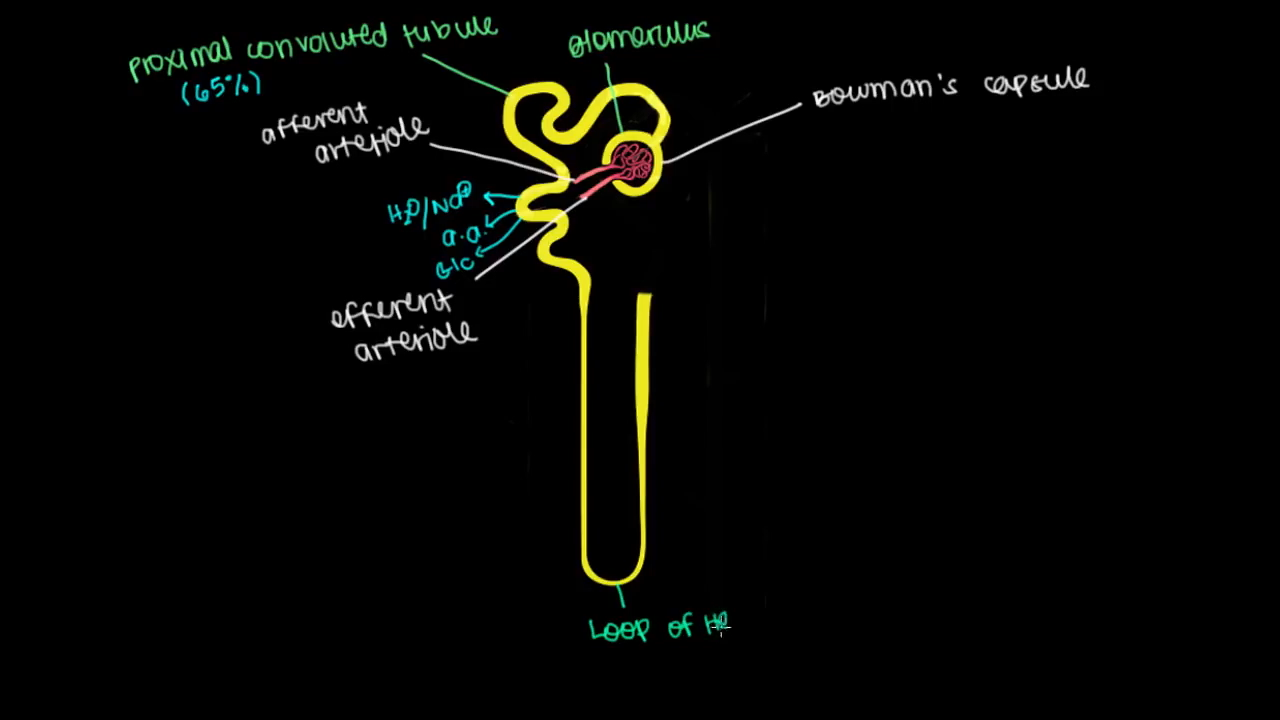 proximal convoluted tubule
(65%)
glomerulus
Bowman's capsule
afferent
arteriole
H2O/Na+
a.a.
Glc
efferent
arteriole
Loop of He